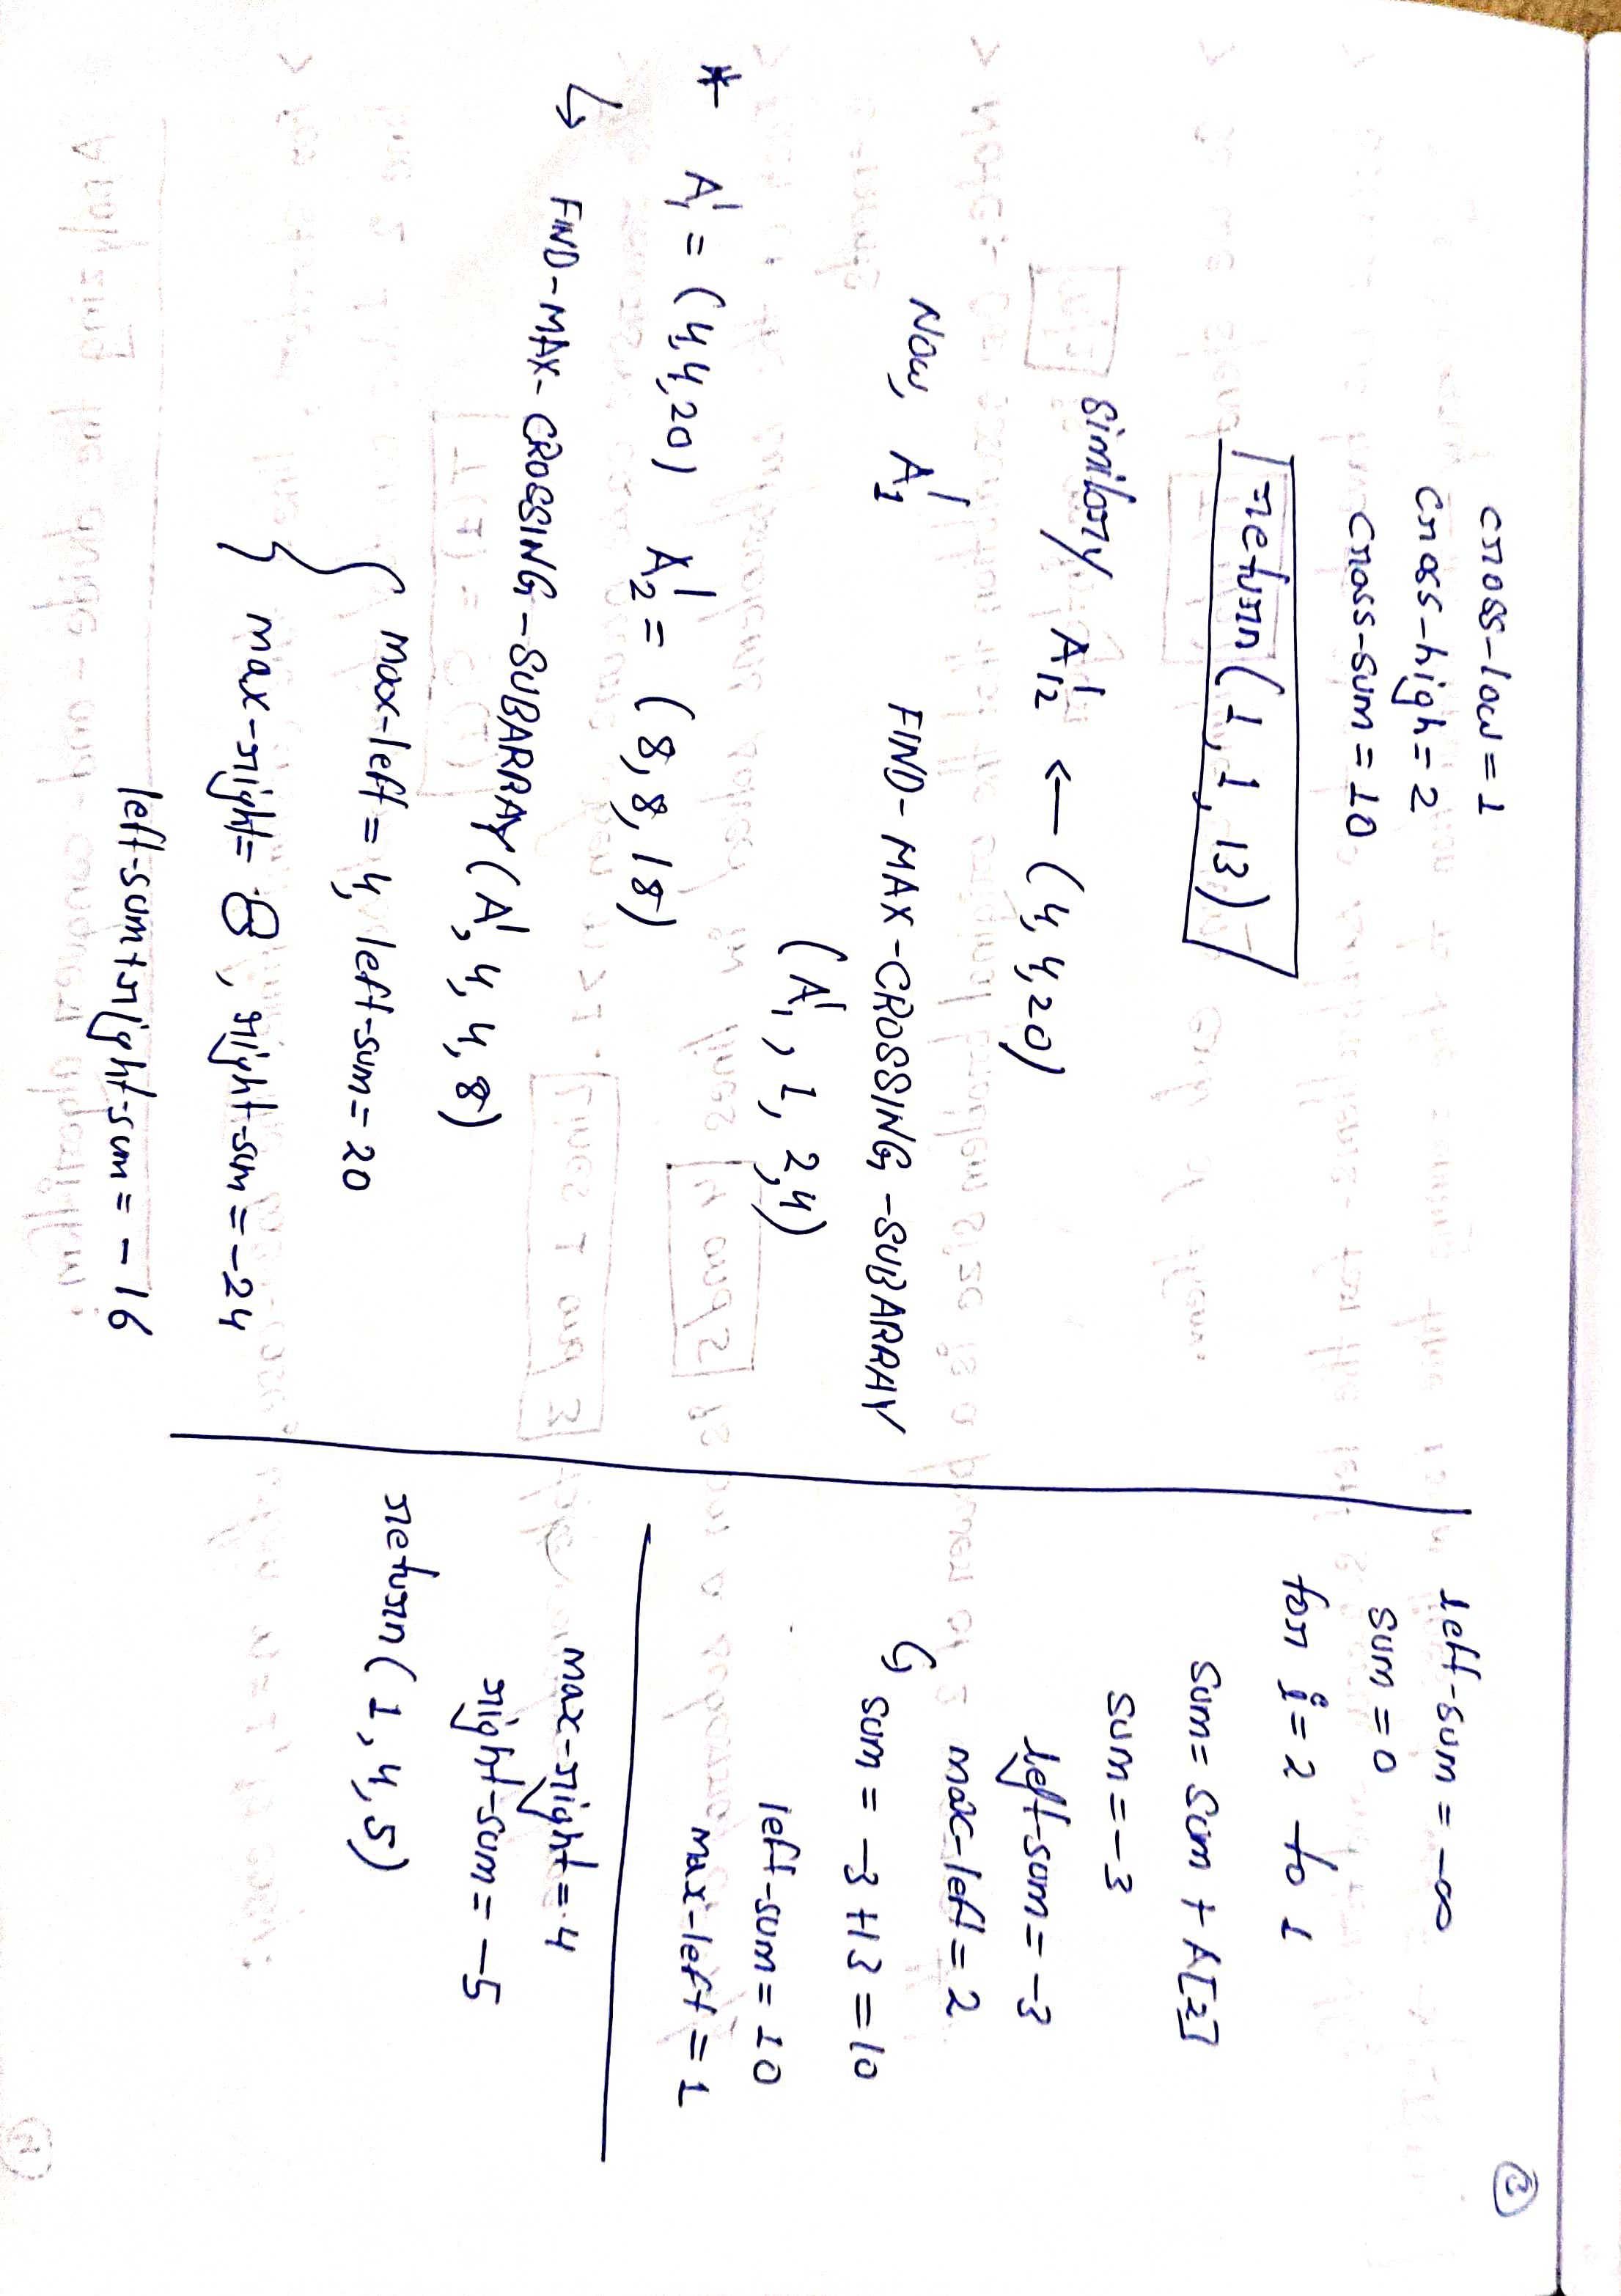 3
cross-low = 1
cross-high = 2
cross-sum = 10
return (1, 1, 13)
Similary A'12 ← (4, 4, 20)
Now, A'1 FIND-MAX-CROSSING-SUBARRAY
(A', 1, 2, 4)
* A'1 = (4, 4, 20) A'2 = (8, 8, 18)
↳ FIND-MAX-CROSSING-SUBARRAY (A', 4, 4, 8)
{ max-left = 4, left-sum = 20
max-right = 8, right-sum = -24
left-sum + right-sum = -16
left-sum = -∞
sum = 0
for i = 2 to 1
sum = sum + A[2]
sum = -3
left-sum = -3
max-left = 2
↳ sum = -3 + 13 = 10
left-sum = 10
max-left = 1
max-right = 4
right-sum = -5
return (1, 4, 5)